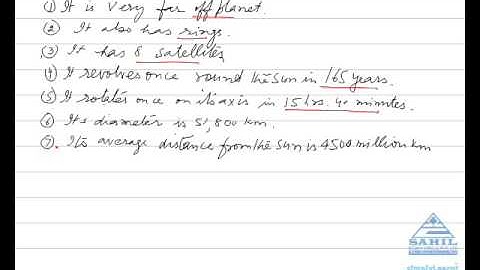 (1) It is very far off planet.
(2) It also has rings.
(3) It has 8 satellites
(4) It revolves once round the Sun in 165 years.
(5) It rotates once on its axis in 15 hrs. 40 minutes.
(6) Its diameter is 51,800 km.
(7). Its average distance from the Sun is 4500 million km
SAHIL